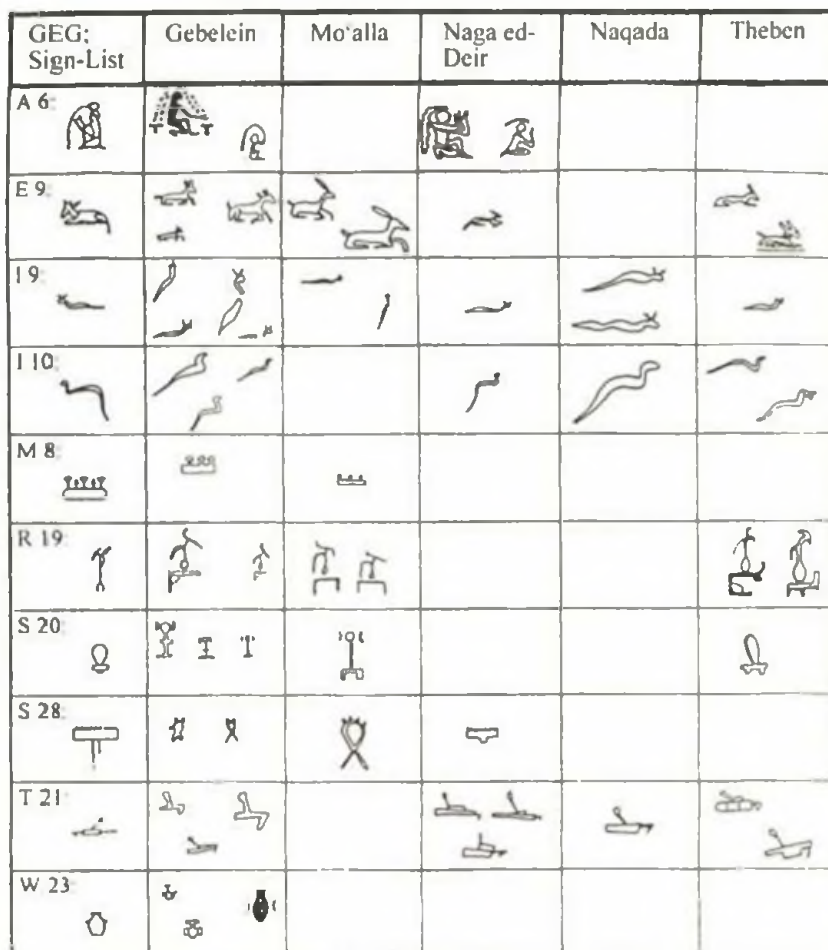 GEG; Sign-List Gebelein Mo‘alla Naga ed-Deir Naqada Theben
A 6:
E 9:
I 9:
I 10:
M 8:
R 19:
S 20:
S 28:
T 21:
W 23